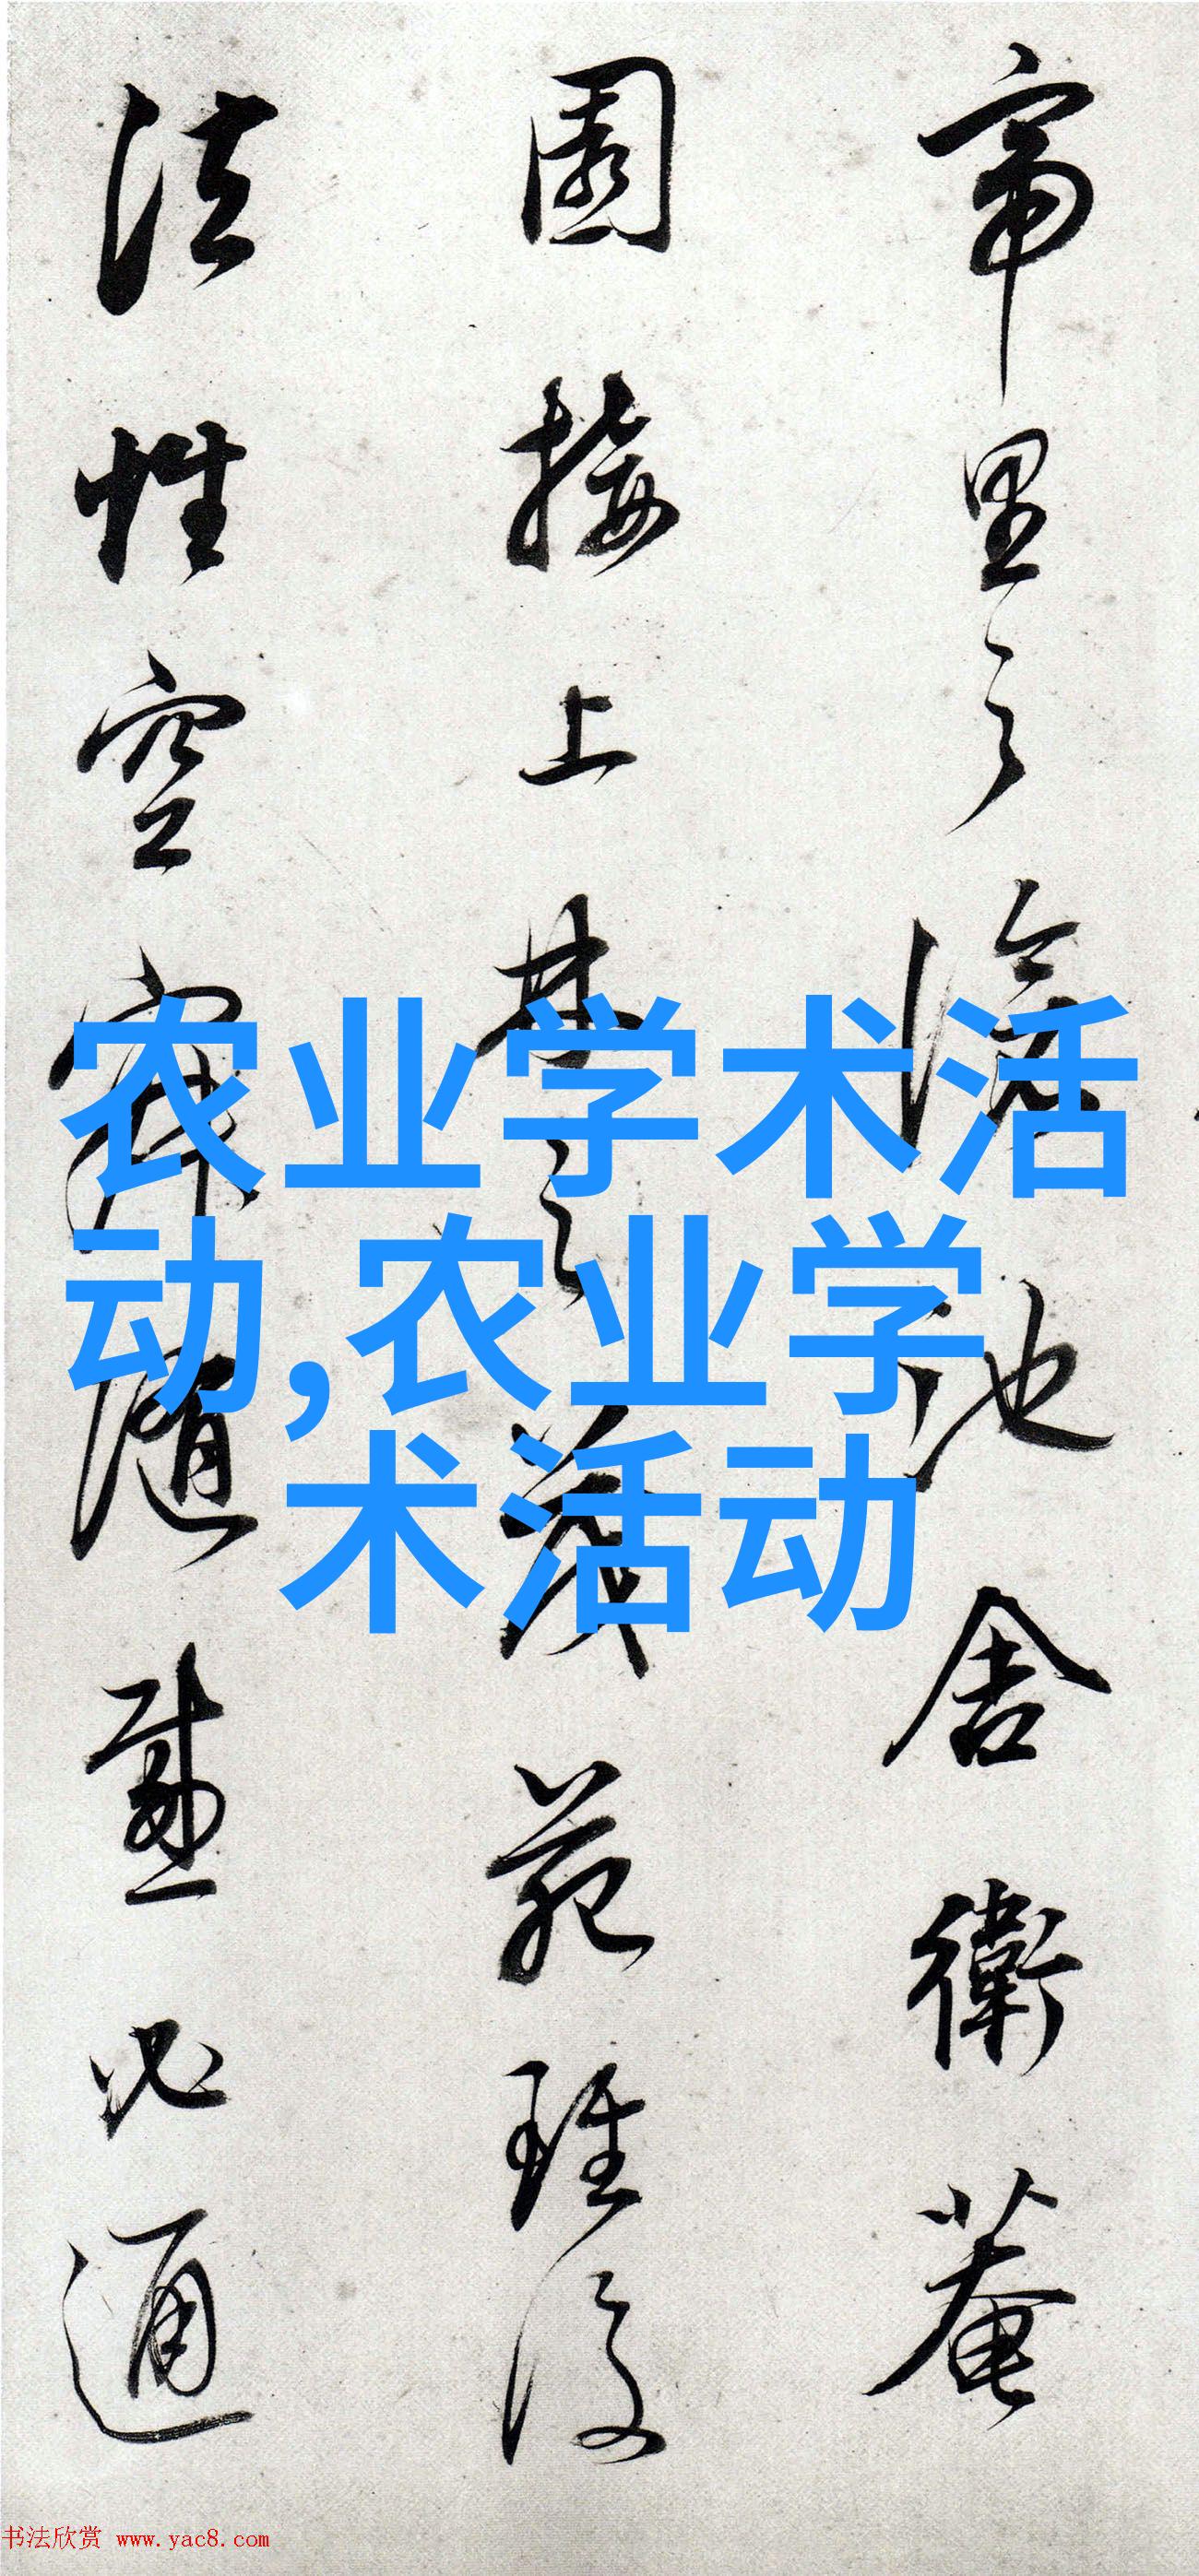 帝里之滄池舍衛菴
園接上林之茂苑雖復
法性空寂隨感必通
农业学术活
动,农业学
术活动
书法欣赏 www.yac8.com